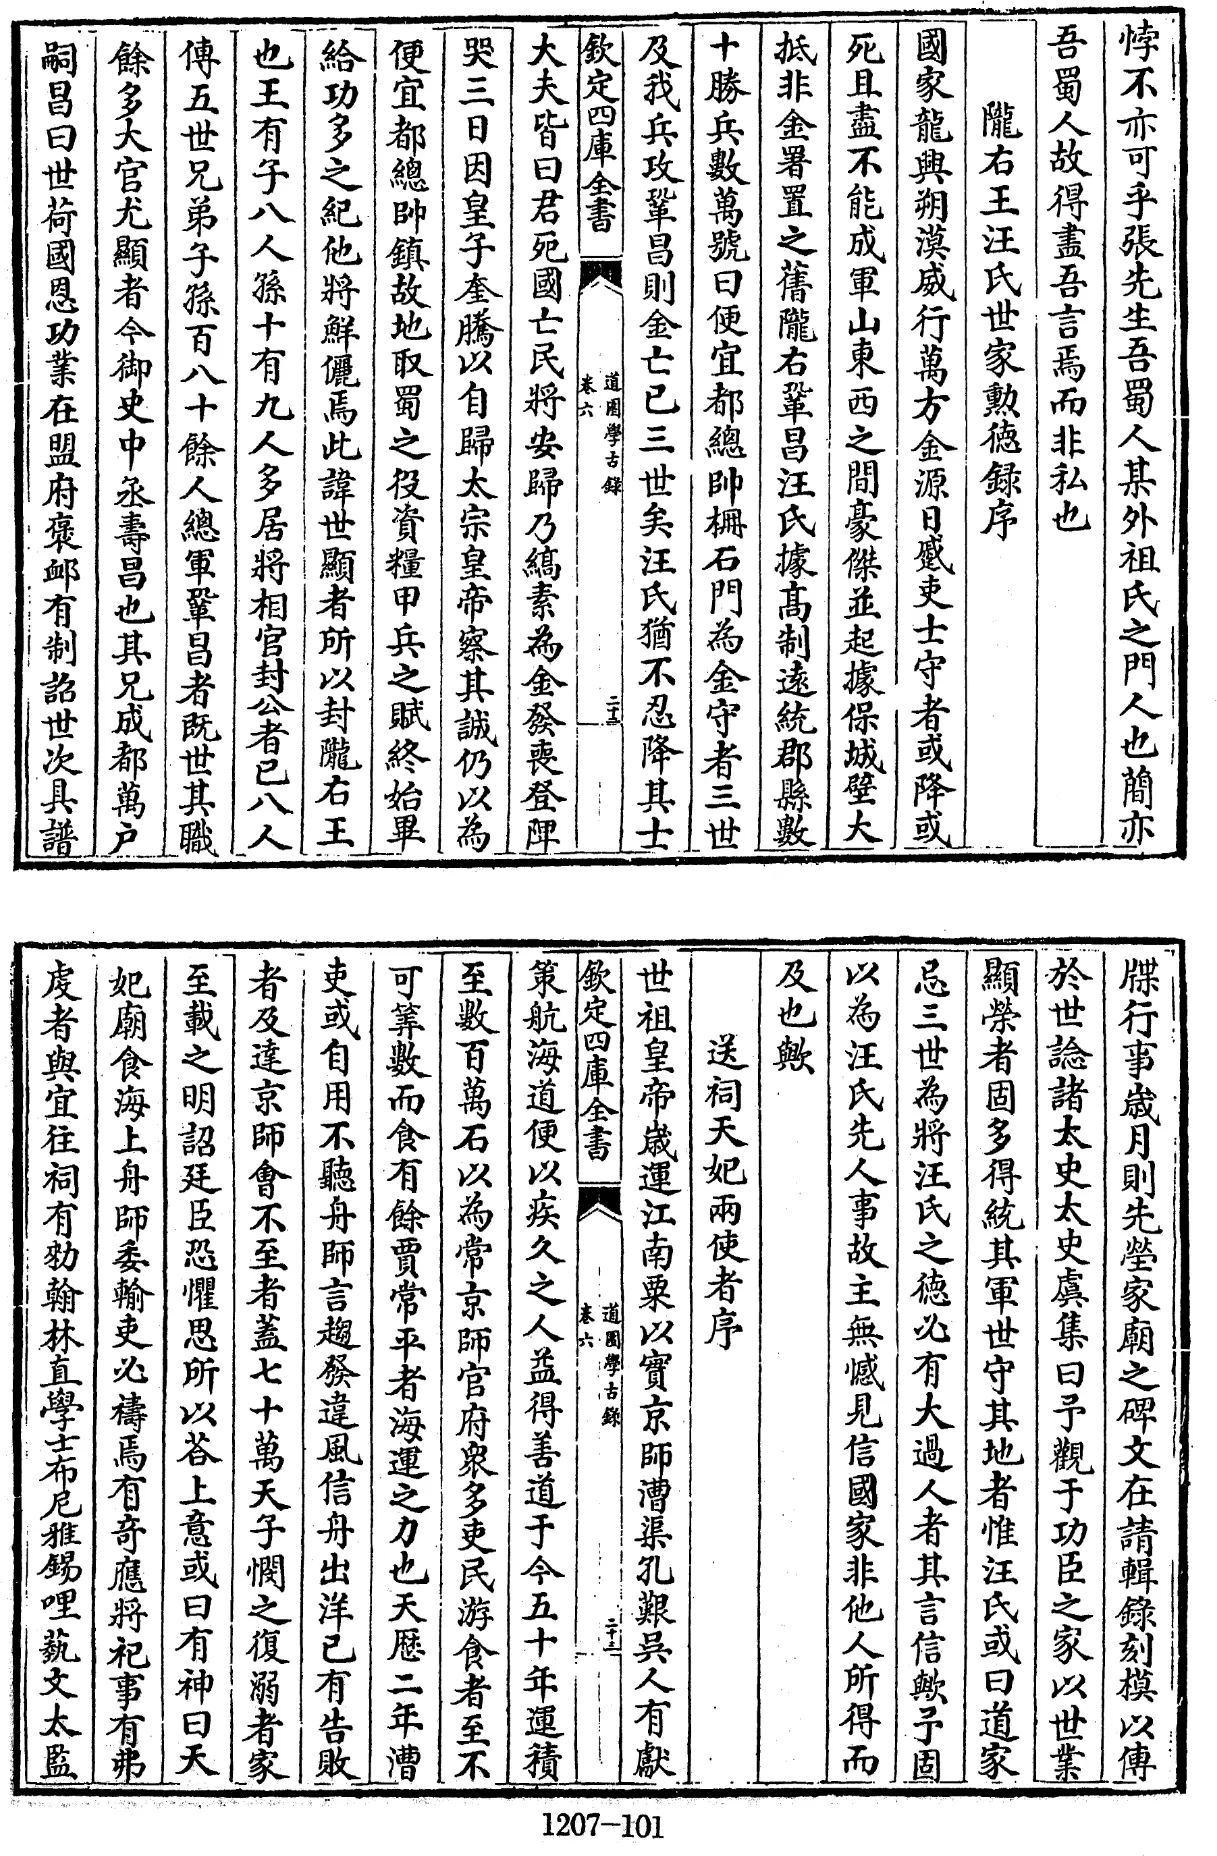 悖不亦可乎張先生吾蜀人某外祖氏之門人也蕳亦
吾蜀人故得盡吾言焉而非私也
隴右王汪氏世家勲徳録序
國家龍興朔漠威行萬方金源日蹙吏士守者或降或
死且盡不能成軍山東西之間豪傑並起據保城壁大
抵非金署置之舊隴右鞏昌汪氏據髙制逺統郡縣數
十勝兵數萬號曰便宜都總帥柵石門為金守者三世
及我兵攻鞏昌則金亡已三世矣汪氏猶不忍降其士
欽定四庫全書
道園學古録
卷六
二十二
大夫皆曰君死國亡民將安歸乃縞素為金發喪登陴
哭三日因皇子奎騰以自歸太宗皇帝察其誠仍以為
便宜都總帥鎮故地取蜀之役資糧甲兵之賦終始畢
給功多之紀他將鮮儷焉此諱世顯者所以封隴右王
也王有子八人孫十有九人多居將相官封公者已八人
傳五世兄弟子孫百八十餘人總軍鞏昌者既世其職
餘多大官尤顯者今御史中丞壽昌也其兄成都萬户
嗣昌曰世荷國恩功業在盟府褒衈有制詔世次具譜
牒行事歲月則先塋家廟之碑文在請輯録刻模以傳
於世諗諸太史太史虞集曰予觀于功臣之家以世業
顯榮者固多得統其軍世守其地者惟汪氏或曰道家
忌三世為將汪氏之徳必有大過人者其言信歟予固
以為汪氏先人事故主無憾見信國家非他人所得而
及也歟
送祠天妃兩使者序
世祖皇帝歲運江南粟以實京師漕渠孔艱吳人有獻
欽定四庫全書
道園學古録
卷六
二十三
策航海道便以疾久之人益得善道于今五十年運積
至數百萬石以為常京師官府衆多吏民游食者至不
可筭數而食有餘賈常平者海運之力也天厯二年漕
吏或自用不聽舟師言趨發違風信舟出洋已有告敗
者及達京師會不至者蓋七十萬天子憫之復溺者家
至載之明詔廷臣恐懼思所以荅上意或曰有神曰天
妃廟食海上舟師委輸吏必禱焉有奇應將祀事有弗
䖍者與宜往祠有勑翰林直學士布尼雅錫哩藝文太監
1207-101